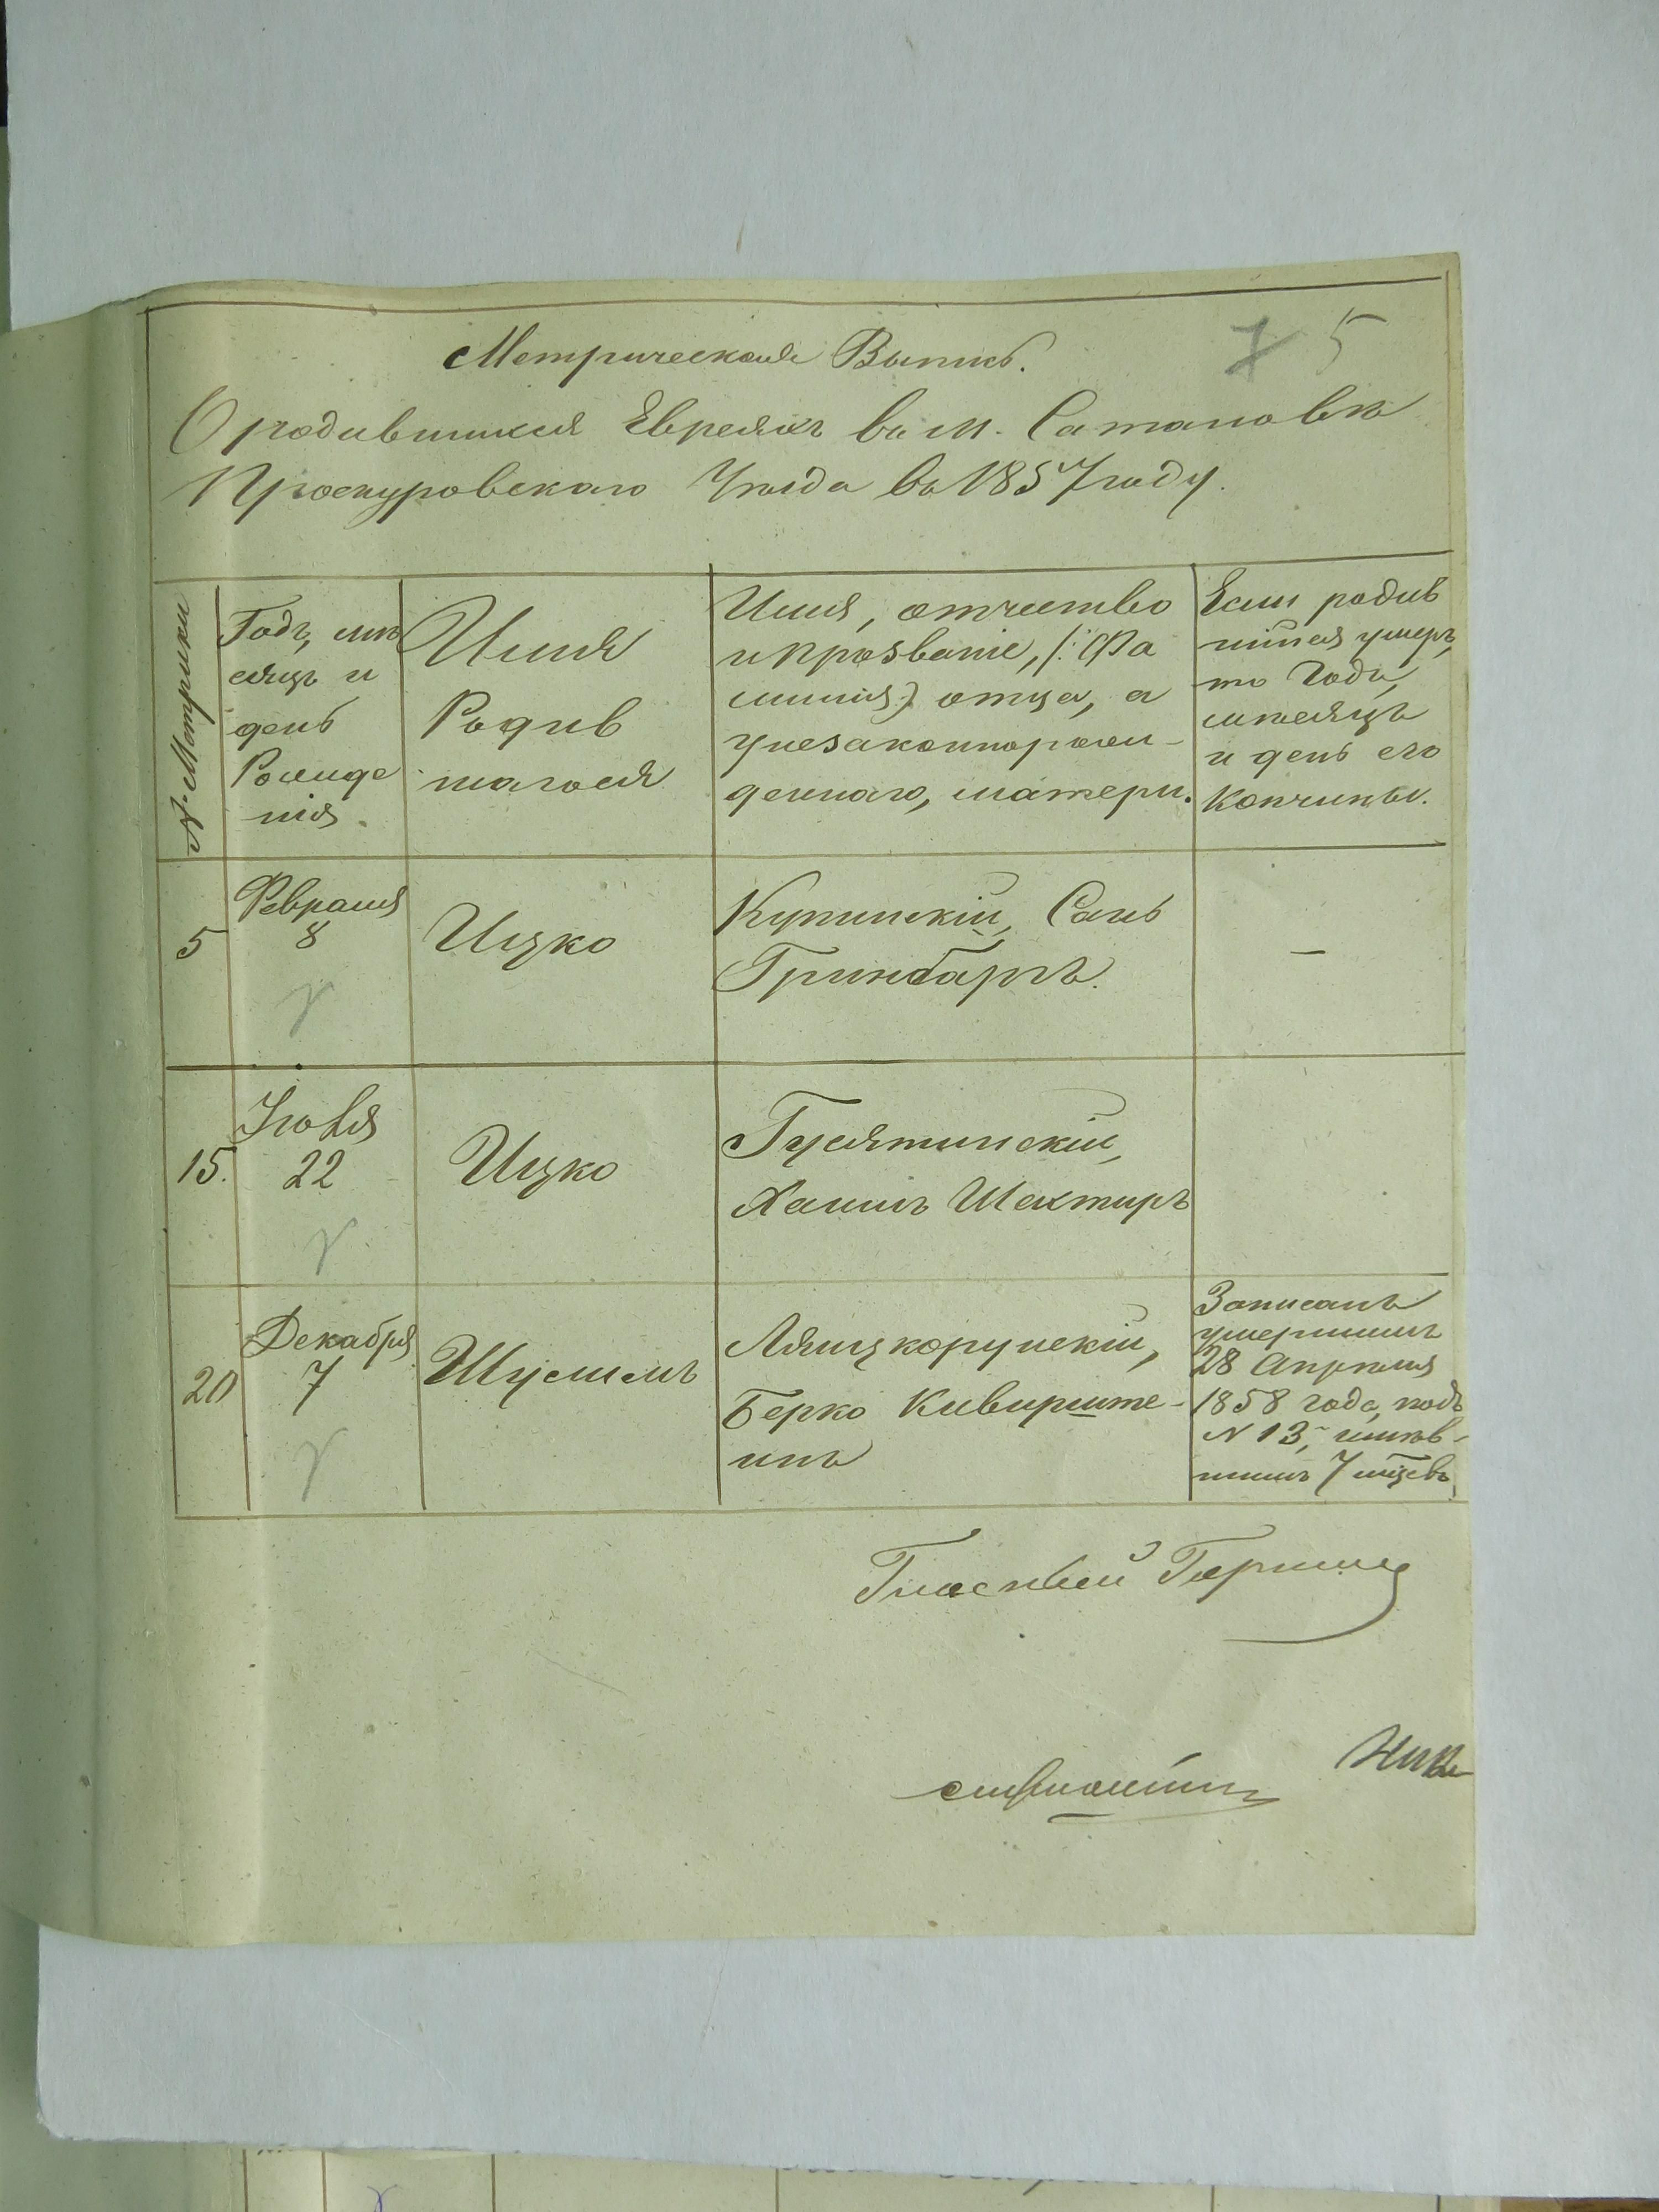 7 5
Метрическая Выпись.
О родившихся Евреяхъ въ м. Сатановкѣ
Проскуровскаго Уѣзда въ 1857 году.
№ Метрики
Годъ, мѣ
сяцъ и
день
Рожде
нія.
Имя
Родив
шагося
Имя, отчество
и прозваніе, /: Фа
милія:) отца, а
у незаконнорож-
деннаго, матери.
Если родив
шійся умеръ,
то Годъ,
мѣсяцъ
и день его
Кончины.
5
Февраля
8
Ицко
Купинскій, Сань
Гринбаргъ.
—
15.
Іюля
22
Ицко
Гусятинскій,
Хаимъ Шехтиръ
20
Декабря
7
Шулимъ
Лянцкорунскій,
Берко Кивирште-
инъ
Записанъ
умершимъ
28 Апрѣля
1858 года, подъ
№ 13, имѣв-
шимъ 7 мѣсв.
Гласный